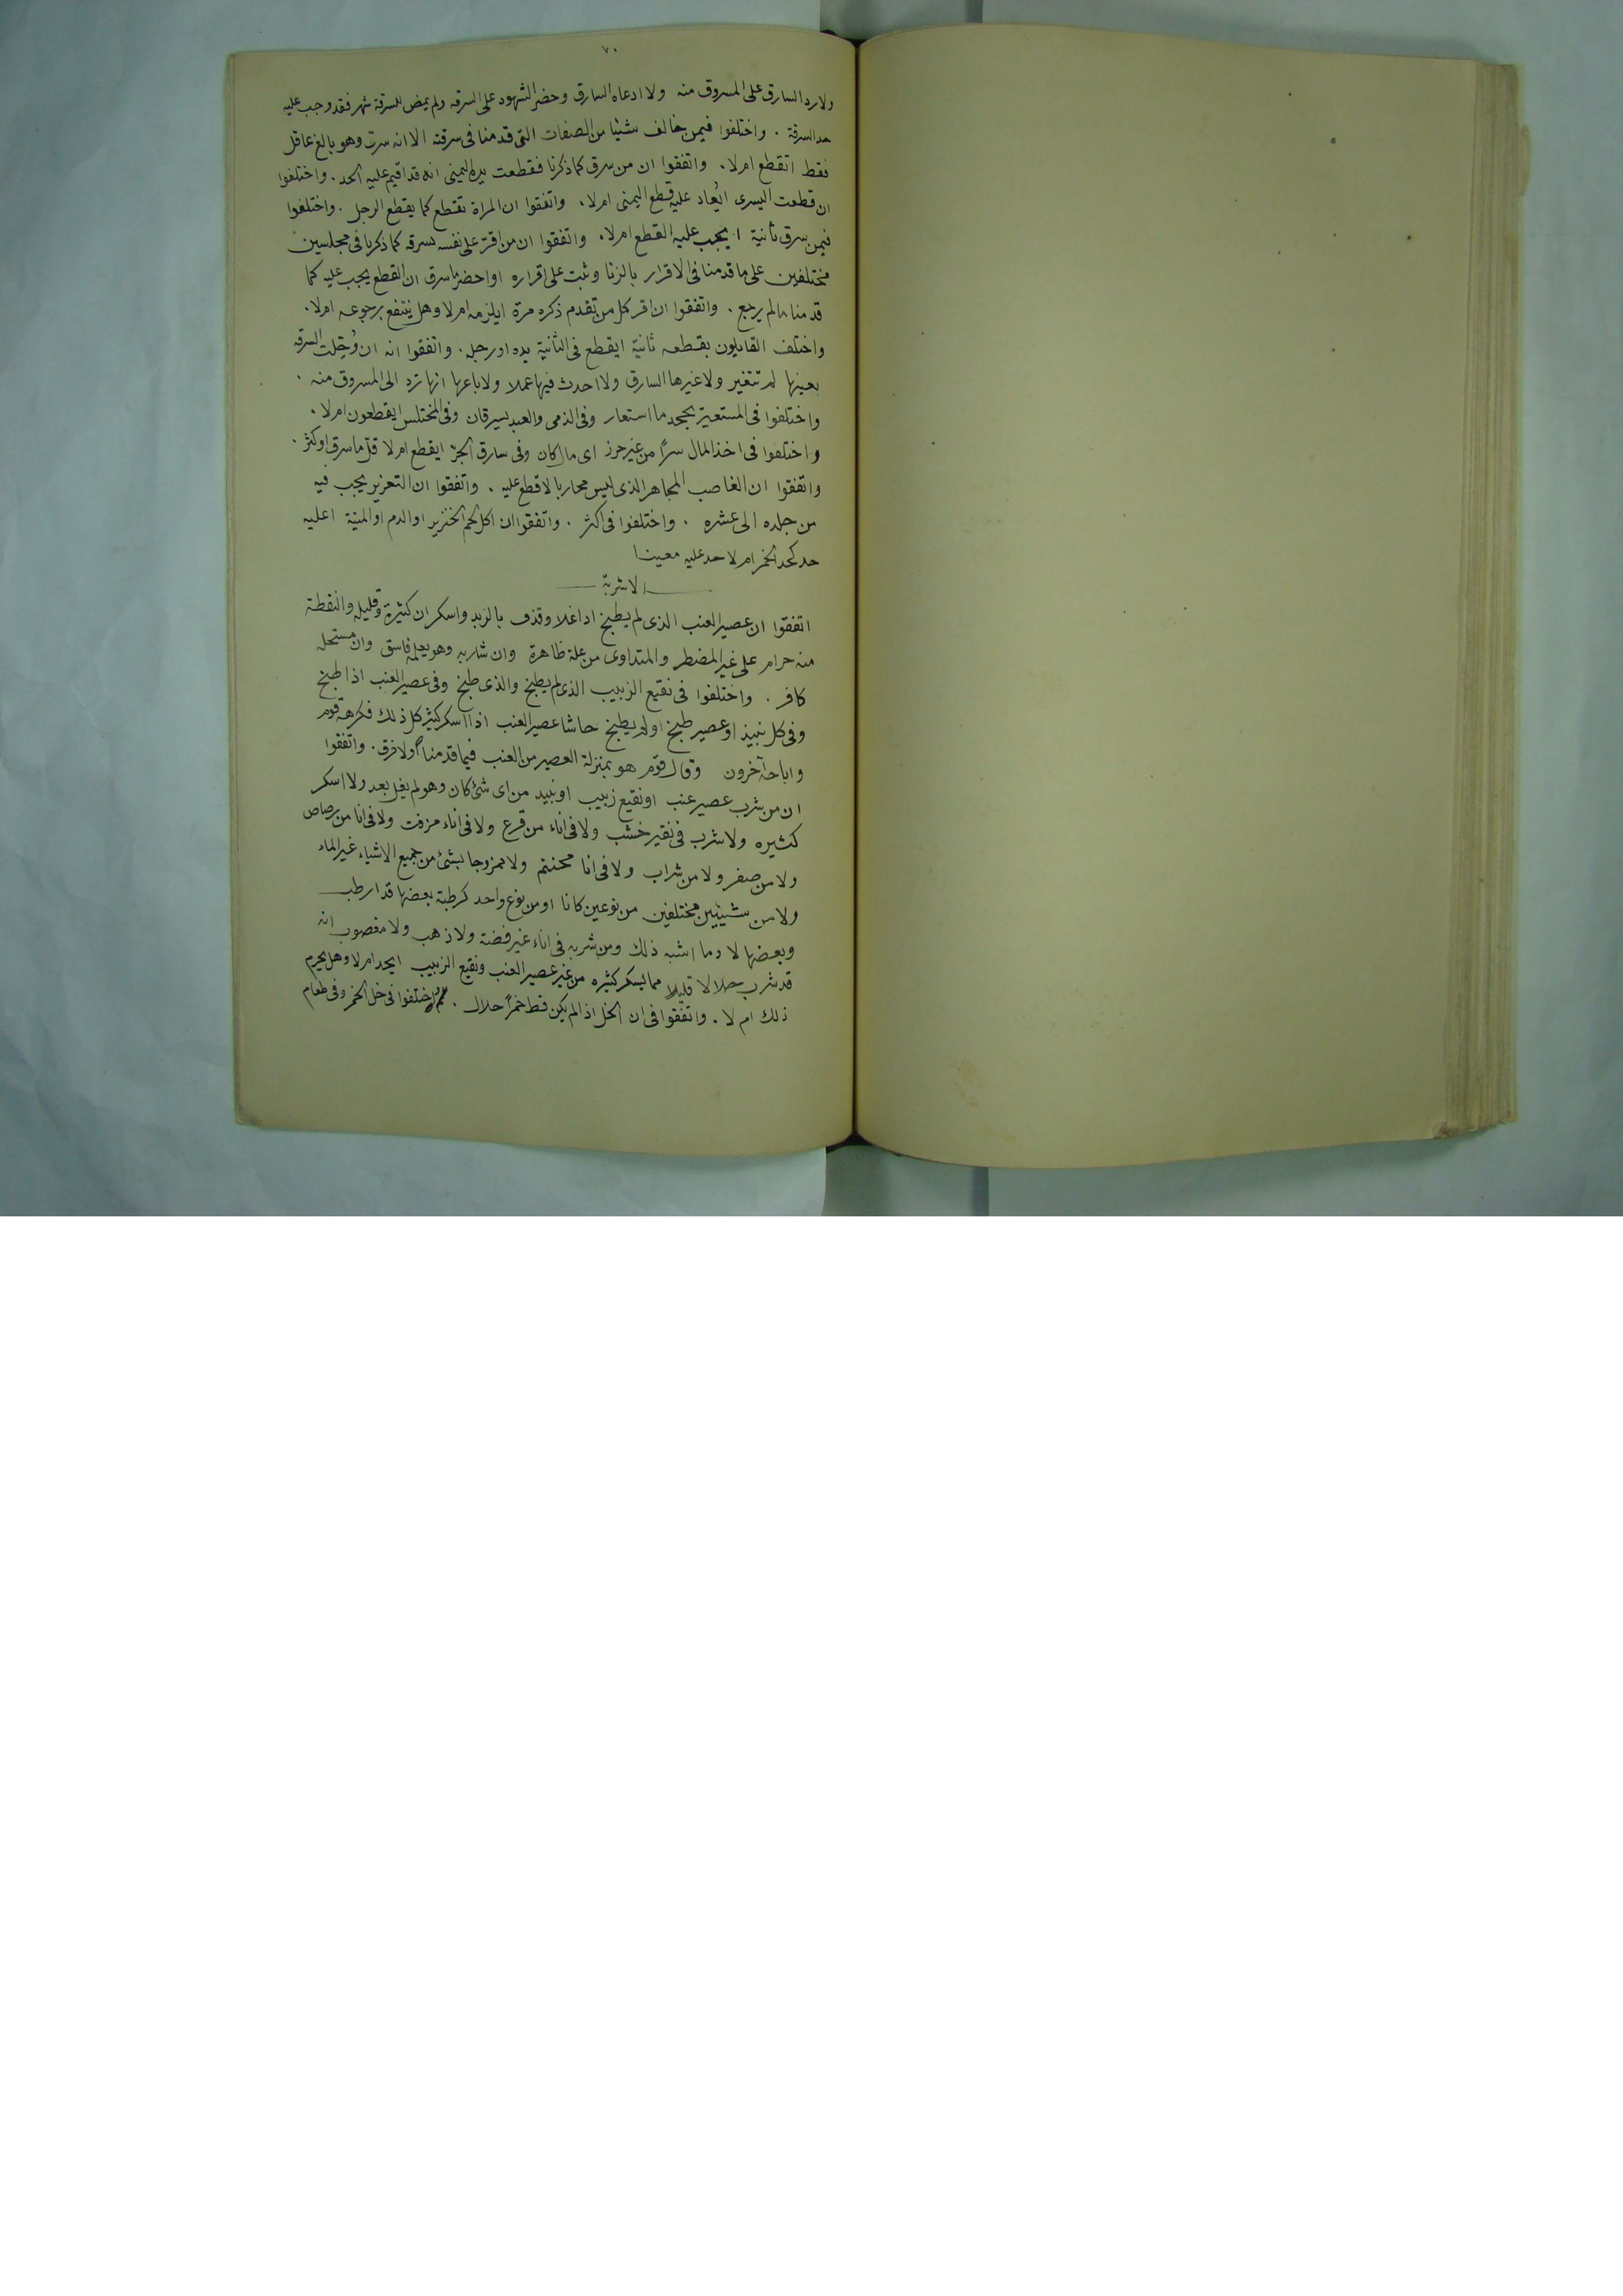 ٧٠
ولا رد السارق على المسروق منه ولا ادعاه السارق وحضر الشهود على السرقه ولم يمض للسرقة شهر فقد وجب عليه
حد السرقة . واختلفوا فيمن خالف شيئا من الصفات التى قدمنا فى سرقته الا انه سرق وهو بالغ عاقل
فقط اتقطع ام لا . واتفقوا ان من سرق كما ذكرنا فقطعت يده اليمنى انه قد اقيم عليه الحد . واختلفوا
ان قطعت اليسرى ايعاد عليه قطع اليمنى ام لا . واتفقوا ان المراة تقطع كما يقطع الرجل . واختلفوا
فيمن سرق ثانية ا يجب عليه القطع ام لا . واتفقوا ان من اقرّ على نفسه بسرقه كما ذكرنا فى مجلسين
مختلفين على ما قدمنا فى الاقرار بالزنا وثبت على اقراره او احضر ما سرق ان القطع يجب عليه كما
قدمنا ما لم يرجع . واتفقوا ان اقر كل من تقدم ذكره مرة ايلزمه ام لا وهل ينتفع برجوعه ام لا .
واختلف القايلون بقطعه ثانية ايقطع فى الثانية يده او رجله . واتفقوا انه ان وُجدت السرقه
بعينها لم تتغير ولا غيرها السارق ولا احدث فيها عملا ولا باعها انها ترد الى المسروق منه .
واختلفوا فى المستعير يجحد ما استعار وفى الذمى والعبد يسرقان وفى المختلس ايقطعون ام لا .
واختلفوا فى اخذ المال سرًا من غير حرز اى مال كان وفى سارق الحرّ ايقطع ام لا قلّ ما سرق او كثر .
واتفقوا ان الغاصب المجاهر الذى ليس محاربا لا قطع عليه . واتفقوا ان التعزير يجب فيه
من جلده الى عشره . واختلفوا فى اكثر . واتفقوا ان اكل لحم الخنزير او الدم او الميتة اعليه
حد كحد الخمر ام لا حد عليه معينا
الاشربة
اتفقوا ان عصير العنب الذى لم يطبخ اذا غلا وقذف بالزبد واسكر ان كثيرة وقليله والنقطة
منه حرام على غير المضطر والمتداوى من علة ظاهرة وان شاربه وهو يعلمه فاسق وان مستحله
كافر . واختلفوا فى نقيع الزبيب الذى لم يطبخ والذى طبخ وفى عصير العنب اذا طبخ
وفى كل نبيذ او عصير طبخ او لم يطبخ حاشا عصير العنب اذا اسكر كثير كل ذلك فكرهه قوم
واباحه آخرون وقال قوم هو بمنزلة العصير من العنب فيما قدمنا ولا فرق . واتفقوا
ان من شرب عصير عنب او نقيع زبيب او نبيذ من اى شئ كان وهو لم يغل بعد ولا اسكر
كثيره ولا شرب فى نقير خشب ولا فى اناء من قرع ولا فى اناء مزفت ولا فى انا من رصاص
ولا من صفر ولا من شراب ولا فى انا محنتم ولا ممزوجا بشئ من جميع الاشياء غير الماء
ولا من شيئين مختلفين من نوعين كانا او من نوع واحد كرطبة بعضها قد ارطب
وبعضها لا وما اشبه ذلك ومن شربه فى اناء غير فضة ولا ذهب ولا مغصوب انه
قد شرب حلالا قليلا مما يسكر كثيره من غير عصير العنب ونقيع الزبيب ايحد ام لا وهل يحرم
ذلك ام لا . واتفقوا فى ان الخل اذا لم يكن قط خمرًا حلال . اختلفوا فى خل الخمر وفى طعام